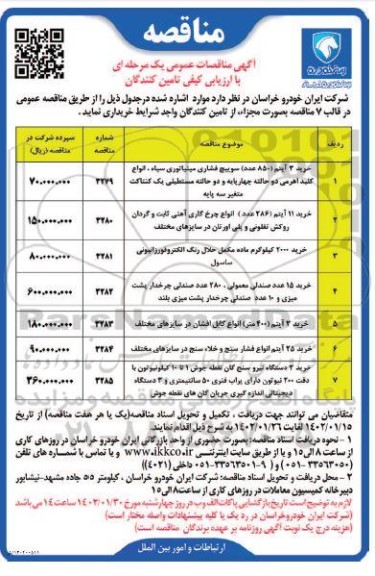 مناقصه
ایران خودرو
خراسان
آگهی مناقصات عمومی یک مرحله ای
با ارزیابی کیفی تامین کنندگان
شرکت ایران خودرو خراسان در نظر دارد موارد اشاره شده درجدول ذیل را از طریق مناقصه عمومی
در قالب ۷ مناقصه بصورت مجزاء، از تامین کنندگان واجد شرایط خریداری نماید.
ردیف موضوع مناقصه شماره مناقصه سپرده شرکت در مناقصه (ریال)
۱ خرید ۳ آیتم (۸۵۰ عدد) سوییچ فشاری مینیاتوری سیاه ، انواع کلید اهرمی دو حالته چهارپایه و دو حالته مستطیلی یک کنتاکت متغیر سه پایه ۳۲۷۹ ۷۰,۰۰۰,۰۰۰
۲ خرید ۱۱ آیتم (۲۸۶ عدد) انواع چرخ گاری آهنی ثابت و گردان روکش تفلونی و پلی اورتان در سایزهای مختلف ۳۲۸۰ ۱۵۰,۰۰۰,۰۰۰
۳ خرید ۲۰۰۰ کیلوگرم ماده مکمل حلال رنگ الکتروفورزاتیونی ساسول ۳۲۸۱ ۸۰,۰۰۰,۰۰۰
۴ خرید ۱۵ عدد صندلی معمولی ، ۲۸۰ عدد صندلی چرخدار پشت میزی و ۱۰ عدد صندلی چرخدار پشت میزی بلند ۳۲۸۲ ۶۰۰,۰۰۰,۰۰۰
۵ خرید ۳ آیتم (۲۰۰ متر) انواع کابل افشان در سایزهای مختلف ۳۲۸۳ ۱۸۰,۰۰۰,۰۰۰
۶ خرید ۲۵ آیتم انواع فشار سنج و خلاء سنج در سایزهای مختلف ۳۲۸۴ ۹۰,۰۰۰,۰۰۰
۷ خرید ۳ دستگاه نیرو سنج گان نقطه جوش ۱ تا ۱۰ کیلونیوتون با دقت ۲۰۰ نیوتون دارای پراب فنری ۵۰ سانتیمتری و ۳ دستگاه دیجیتالی اندازه گیری جریان گان های نقطه جوش ۳۲۸۵ ۳۶۰,۰۰۰,۰۰۰
متقاضیان می توانند جهت دریافت ، تکمیل و تحویل اسناد مناقصه(یک یا هر هفت مناقصه) از تاریخ
۱۴۰۲/۰۱/۱۵ لغایت ۱۴۰۲/۰۱/۲۶ به شرح ذیل اقدام نمایند:
۱ - نحوه دریافت اسناد مناقصه: بصورت حضوری از واحد بازرگانی ایران خودرو خراسان در روزهای کاری
از ساعت ۸ الی ۱۵ و یا از طریق سایت اینترنتی www.ikkco.ir و یا تماس با شماره های تلفن
۲ - محل دریافت و تحویل اسناد مناقصه: شرکت ایران خودرو خراسان ، کیلومتر ۵۵ جاده مشهد-نیشابور
دبیرخانه کمیسیون معاملات در روزهای کاری از ساعت ۸ الی ۱۵
لازم به توضیح است تاریخ بازگشایی پاکات الف و ب در روز چهارشنبه مورخ ۱۴۰۲/۰۱/۳۰ ساعت ۱۴ می باشد
(شرکت ایران خودرو خراسان در رد یک یا کلیه پیشنهادات واصله مختار است)
(هزینه درج یک نوبت آگهی روزنامه بر عهده برندگان مناقصه است)
ارتباطات و امور بین الملل